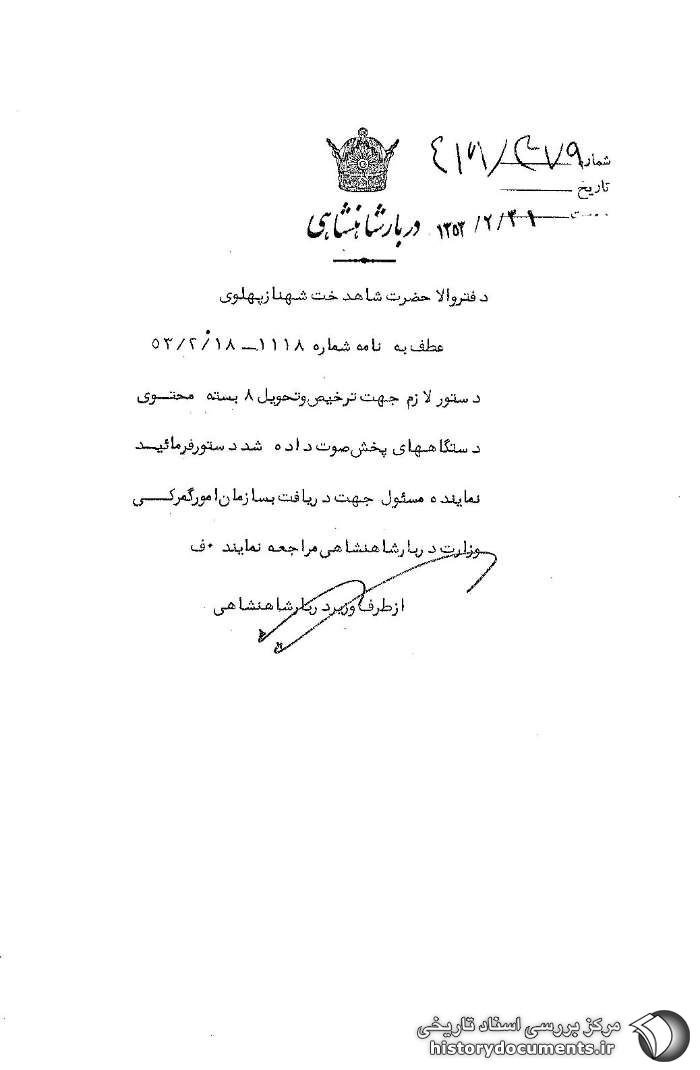 شماره
تاریخ
۱۳۵۳/۲/۳۱
دربار شاهنشاهی
دفتر والاحضرت شاهدخت شهناز پهلوی
عطف به نامه شماره ۱۱۱۸ــ۵۳/۲/۱۸
دستور لازم جهت ترخیص و تحویل ۸ بسته محتوی
دستگاههای پخش صوت داده شد دستور فرمائید
نماینده مسئول جهت دریافت بسازمان امور گمرکی
وزارت دربار شاهنشاهی مراجعه نمایند ۰ف
از طرف وزیر دربار شاهنشاهی
مرکز بررسی اسناد تاریخی
historydocuments.ir